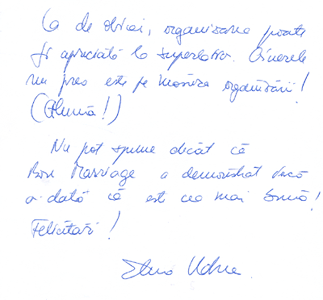 Ca de obicei, organizarea poate
fi apreciată la superlativ. Vinurile
nu prea este pe măsura organizării!
(Glumă!)
Nu pot spune decât că
Bon Marriage a demonstrat încă
o dată că est cea mai bună!
Felicitări!
Elena Udrea